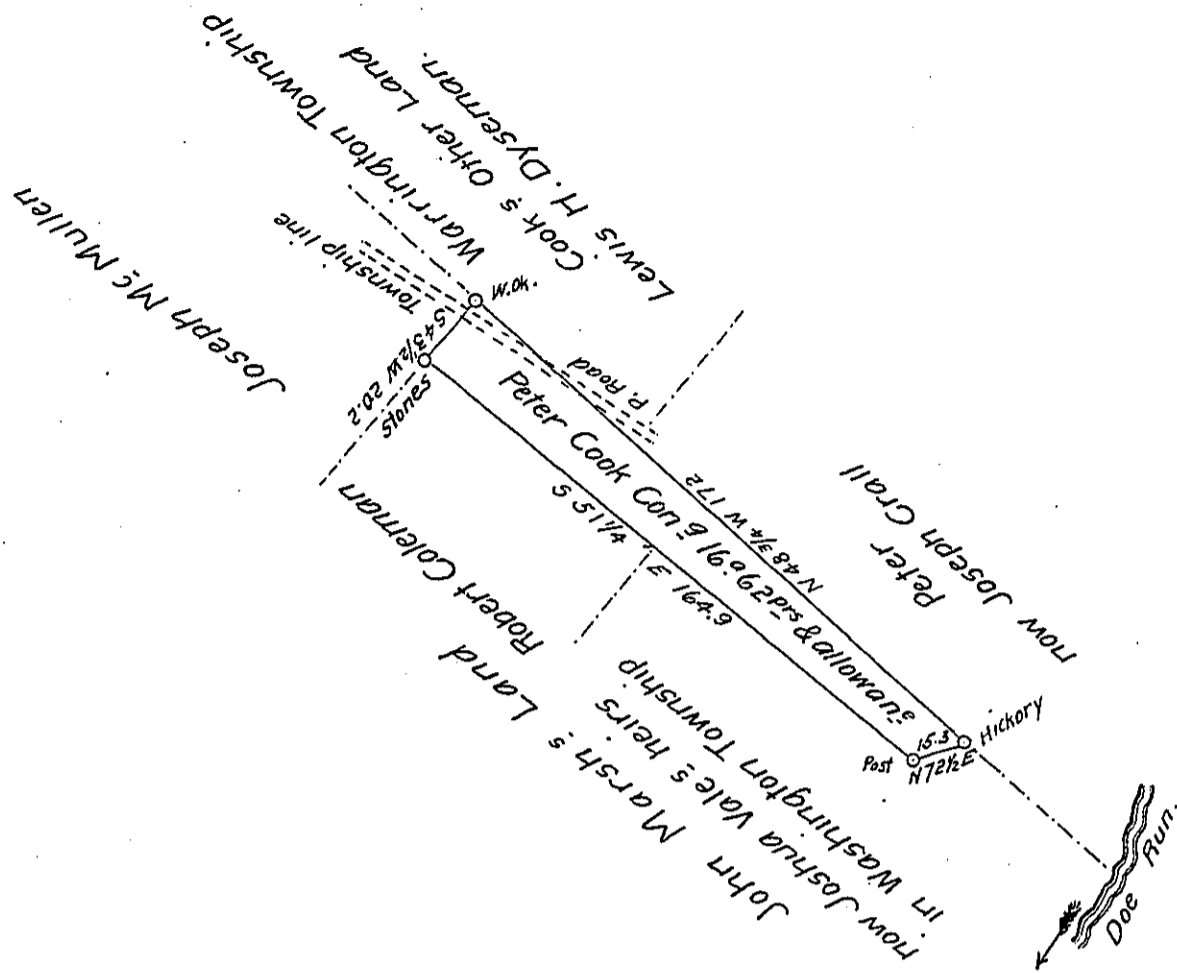 Lewis H. Dyseman.
Cook's Other Land
Warrington Township
Township line
Joseph McMullen
W.Ok.
S 43 1/2 W 20.2
Stones
P. Road
Peter Cook Con̄g 16a. 92 prs & allowance
N 48 3/4 W 172
S 51 1/4 E 164.9
Robert Coleman
Peter
now Joseph Crall
John Marsh's Land
now Joshua Vale's heirs
in Washington Township
Post
15.3
N 72 1/2 E
Hickory
Doe Run.